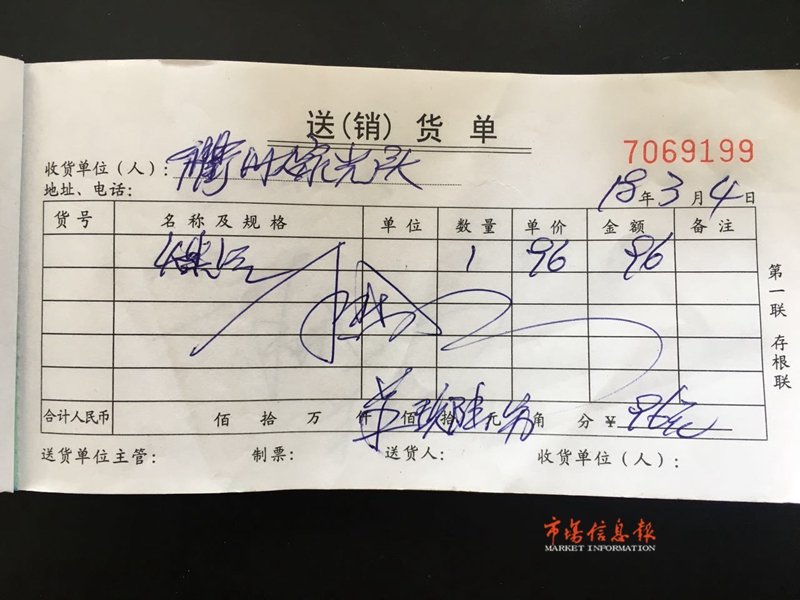 送(销)货单
7069199
收货单位(人):
地址、电话: 18年3月4日
货号 名称及规格 单位 数量 单价 金额 备注
煤气 1 96 96
合计人民币 佰 拾 万 仟 佰 拾 元 角 分 ¥ 96元
送货单位主管: 制票: 送货人: 收货单位(人):
第一联 存根联
市场信息报
MARKET INFORMATION